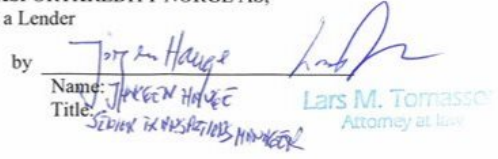 EKSPORTKREDITT NORGE AS,
a Lender
by Jørgen Hauge
Name: JØRGEN HAUGE
Title: SENIOR TRANSACTIONS MANAGER
Lars M. Tomasso
Attorney at law